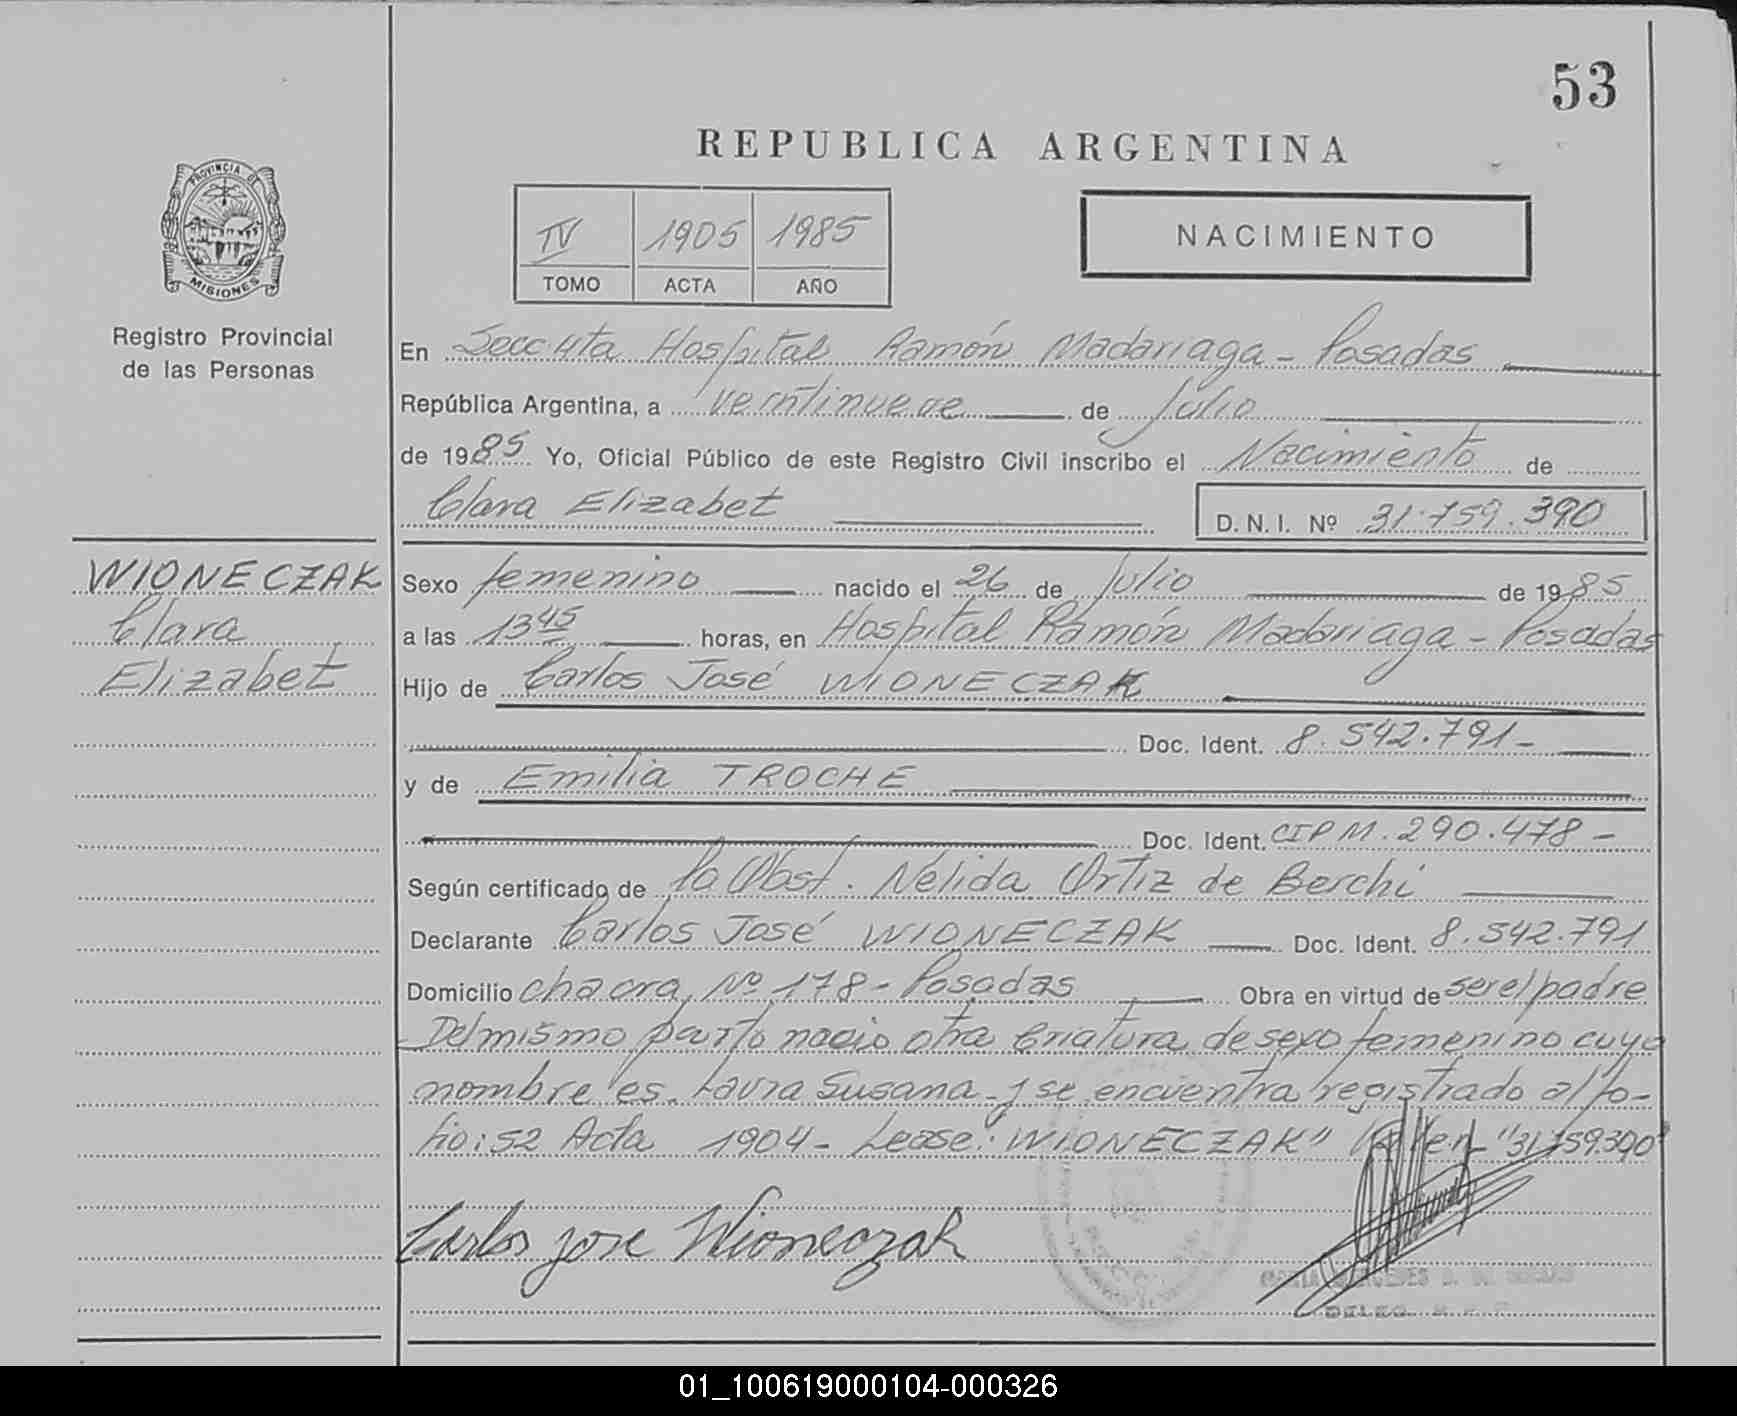 53
REPUBLICA ARGENTINA
PROVINCIA DE
MISIONES
Registro Provincial
de las Personas
IV 1905 1985
TOMO ACTA AÑO
NACIMIENTO
En Secc 4ta Hospital Ramón Madariaga - Posadas
República Argentina, a veintinueve de Julio
de 1985 Yo, Oficial Público de este Registro Civil inscribo el Nacimiento de
Clara Elizabet D. N. I. Nº 31.759.390
WIONECZAK
Clara
Elizabet
Sexo femenino nacido el 26 de Julio de 1985
a las 13 45 horas, en Hospital Ramón Madariaga - Posadas
Hijo de Carlos José WIONECZAK
Doc. Ident. 8.542.791-
y de Emilia TROCHE
Doc. Ident. CIPM. 290.478-
Según certificado de la Obst. Nélida Ortiz de Berchi
Declarante Carlos José WIONECZAK Doc. Ident. 8.542.791
Domicilio chacra Nº 178 - Posadas Obra en virtud de ser el padre
Del mismo parto nacio otra Criatura de sexo femenino cuyo
nombre es Laura Susana y se encuentra registrado al fo-
lio: 52 Acta 1904- Lease: "WIONECZAK" "31.759.390"
Carlos jose Wioneczak
01_100619000104-000326